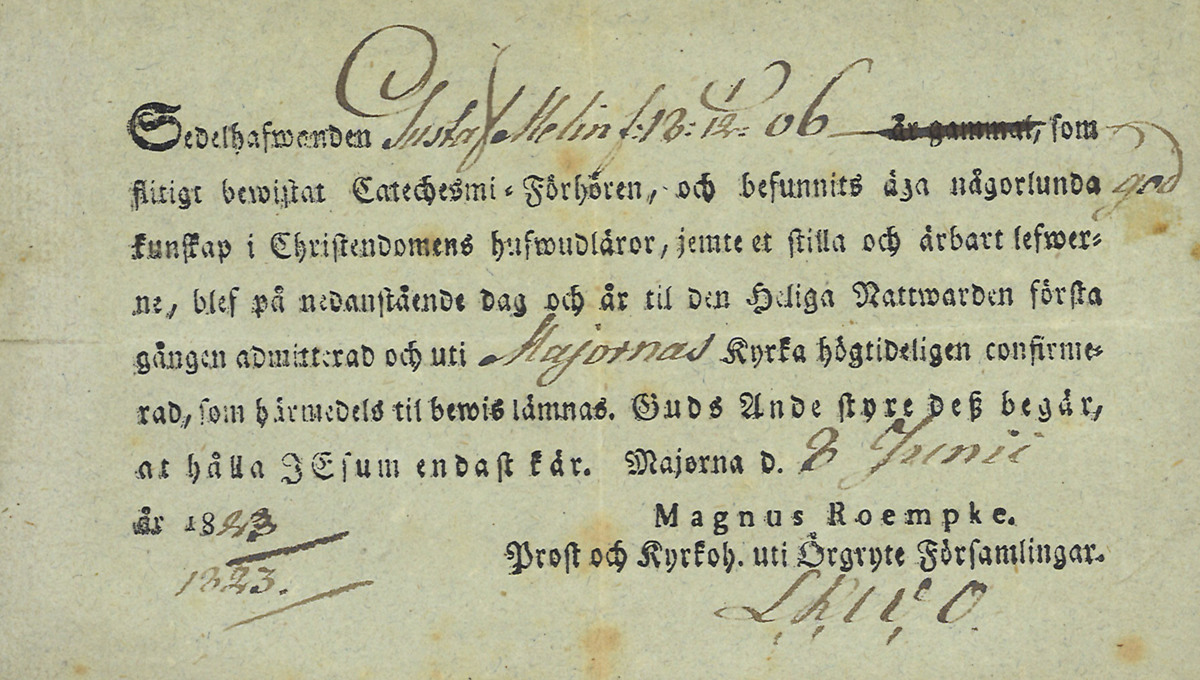 Sedelhafwanden Gustaf Melin f: 13: 12: 06 år gammal, som
flitigt bewistat Catechesmi-Förhören, och befunnits äga någorlunda god
kunskap i Christendomens hufwudläror, jemte et stilla och ärbart lefwer-
ne, blef på nedanstående dag och år til den Heliga Nattwarden första
gången admitterad och uti Majornas Kyrka högtideligen confirme-
rad, som härmedels til bewis lämnas. Guds Ande styre deß begär,
at hålla JEsum endast kär. Majorna d. 8 Junii
år 1823
Magnus Roempke.
1823.
Prost och Kyrkoh. uti Örgryte Församlingar.